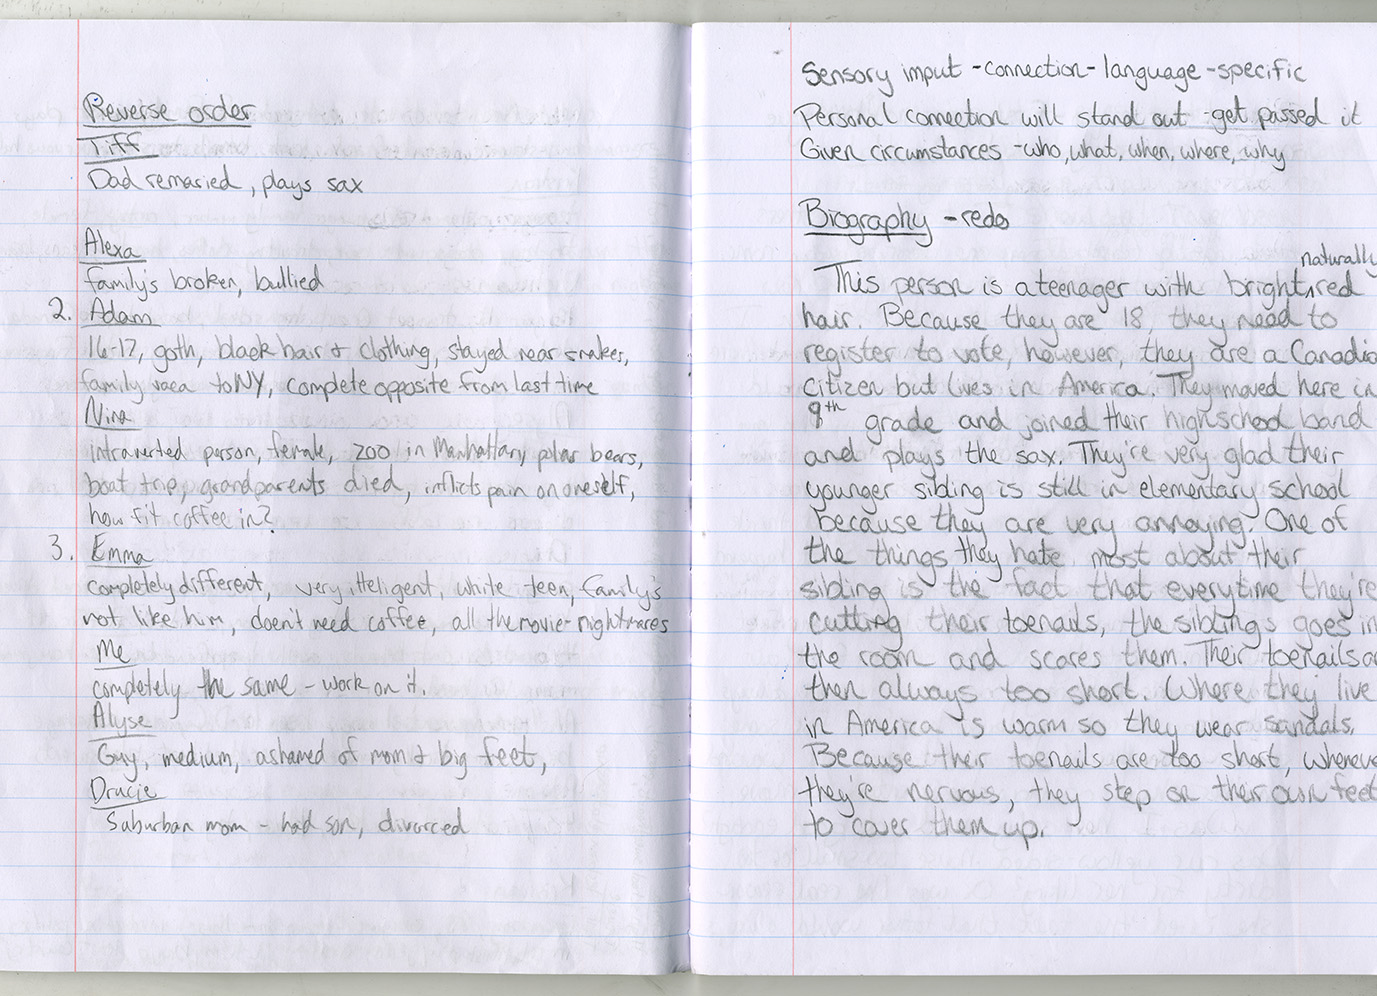 Reverse order
Tiff
Dad remaried, plays sax
Alexa
family's broken, bullied
2. Adam
16-17, goth, black hair & clothing, stayed near snakes,
family to NY, complete opposite from last time
Nina
intraverted person, female, zoo in Manhattan, polar bears,
boat trip, grandparents died, inflicts pain on oneself,
how fit coffee in?
3. Emma
completely different, very itteligent, white teen, family's
not like him, doen't need coffee, all the movie-nightmares
Me
completely the same - work on it.
Alyse
Guy, medium, ashamed of mom & big feet,
Dracie
Suburban mom - had son, divorced
Sensory imput - connection - language - specific
Personal connection will stand out - get passed it
Given circumstances - who, what, when, where, why
Biography - redo
naturally
This person is a teenager with bright red
hair. Because they are 18, they need to
register to vote, however, they are a Canadia
Citizen but lives in America. They moved here in
9th grade and joined their highschool band
and plays the sax. They're very glad their
younger sibling is still in elementary school
because they are very annoying. One of
the things they hate most about their
sibling is the fact that everytime they're
cutting their toenails, the siblings goes in
the room and scares them. Their toenails a
then always too short. Where they live
in America is warm so they wear sandals.
Because their toenails are too short, wheneve
they're nervous, they step on their own feet
to cover them up.